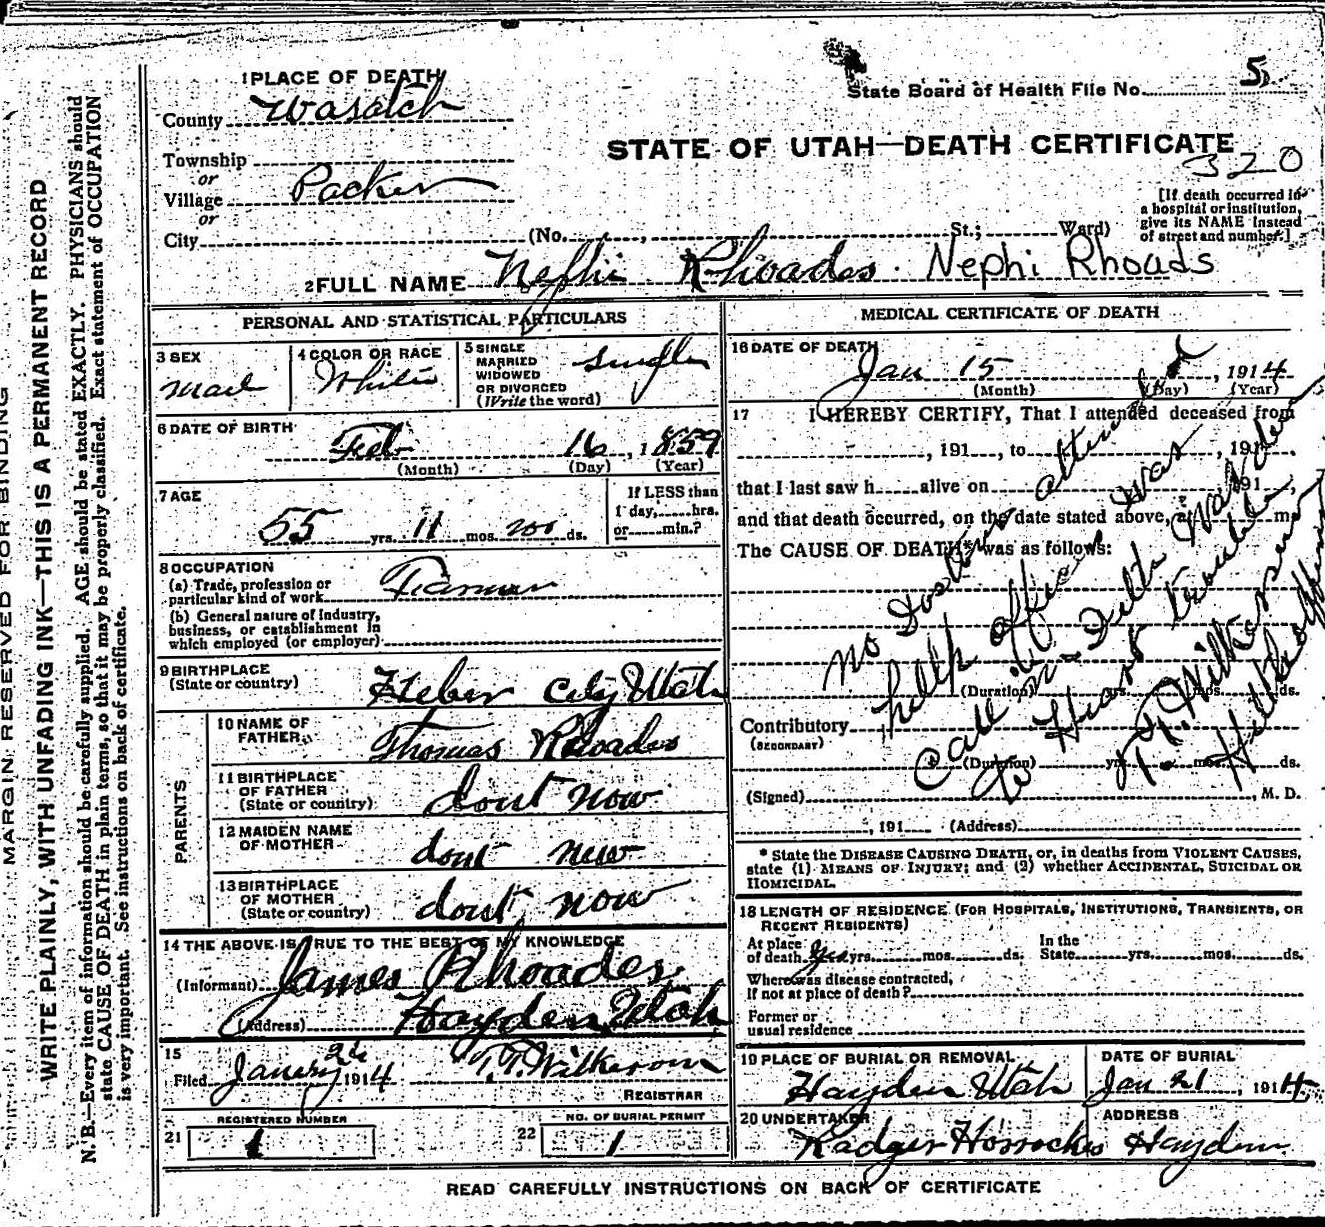 MARGIN RESERVED FOR BINDING
WRITE PLAINLY, WITH UNFADING INK—THIS IS A PERMANENT RECORD
N. B.—Every item of information should be carefully supplied. AGE should be stated EXACTLY. PHYSICIANS should
state CAUSE OF DEATH in plain terms, so that it may be properly classified. Exact statement of OCCUPATION
is very important. See instructions on back of certificate.
1 PLACE OF DEATH
County Wasatch
Township
or
Village Packer
or
City (No. , St.; Ward)
State Board of Health File No. 5
STATE OF UTAH—DEATH CERTIFICATE
320
[If death occurred in
a hospital or institution,
give its NAME instead
of street and number.]
2 FULL NAME Nephi Rhoades. Nephi Rhoads
PERSONAL AND STATISTICAL PARTICULARS
3 SEX
mail
4 COLOR OR RACE
White
5 SINGLE
MARRIED
WIDOWED
OR DIVORCED
(Write the word)
single
6 DATE OF BIRTH
Feb 16, 1859
(Month) (Day) (Year)
7 AGE
55 yrs. 11 mos. ds.
If LESS than
1 day, hrs.
or min.?
8 OCCUPATION
(a) Trade, profession or
particular kind of work Farmer
(b) General nature of industry,
business, or establishment in
which employed (or employer)
9 BIRTHPLACE
(State or country) Heber City Utah
PARENTS
10 NAME OF
FATHER Thomas Rhoades
11 BIRTHPLACE
OF FATHER
(State or country) dont now
12 MAIDEN NAME
OF MOTHER dont new
13 BIRTHPLACE
OF MOTHER
(State or country) dont now
14 THE ABOVE IS TRUE TO THE BEST OF MY KNOWLEDGE
(Informant) James Rhoades
(Address) Hayden Utah
15
Filed 1914 T. T. Wilkerson
REGISTRAR
REGISTERED NUMBER
21 1
NO. OF BURIAL PERMIT
22 1
MEDICAL CERTIFICATE OF DEATH
16 DATE OF DEATH
Jan 15, 1914
(Month) (Day) (Year)
17 I HEREBY CERTIFY, That I attended deceased from
, 191 , to , 191 .
that I last saw h alive on , 191 ,
and that death occurred, on the date stated above, at m.
The CAUSE OF DEATH* was as follows:
no Doctor attended
helth officer was
Call it Deth was due
to Heart trouble
T. T. Wilkerson
Helth officer
(Duration) yrs. mos. ds.
Contributory
(SECONDARY)
(Duration) yrs. mos. ds.
(Signed) , M. D.
, 191 (Address)
* State the DISEASE CAUSING DEATH, or, in deaths from VIOLENT CAUSES,
state (1) MEANS OF INJURY; and (2) whether ACCIDENTAL, SUICIDAL OR
HOMICIDAL.
18 LENGTH OF RESIDENCE (FOR HOSPITALS, INSTITUTIONS, TRANSIENTS, OR
RECENT RESIDENTS)
At place
of death yrs. mos. ds.
In the
State yrs. mos. ds.
Where was disease contracted,
If not at place of death?
Former or
usual residence
19 PLACE OF BURIAL OR REMOVAL
Hayden Utah
DATE OF BURIAL
Jan 21, 1914
20 UNDERTAKER
Horrocks
ADDRESS
Hayden
READ CAREFULLY INSTRUCTIONS ON BACK OF CERTIFICATE